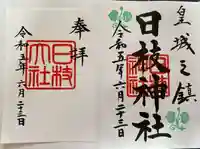 皇城之鎮
日枝神社
令和五年六月二十三日
奉拝
日枝
大社
令和五年六月二十三日